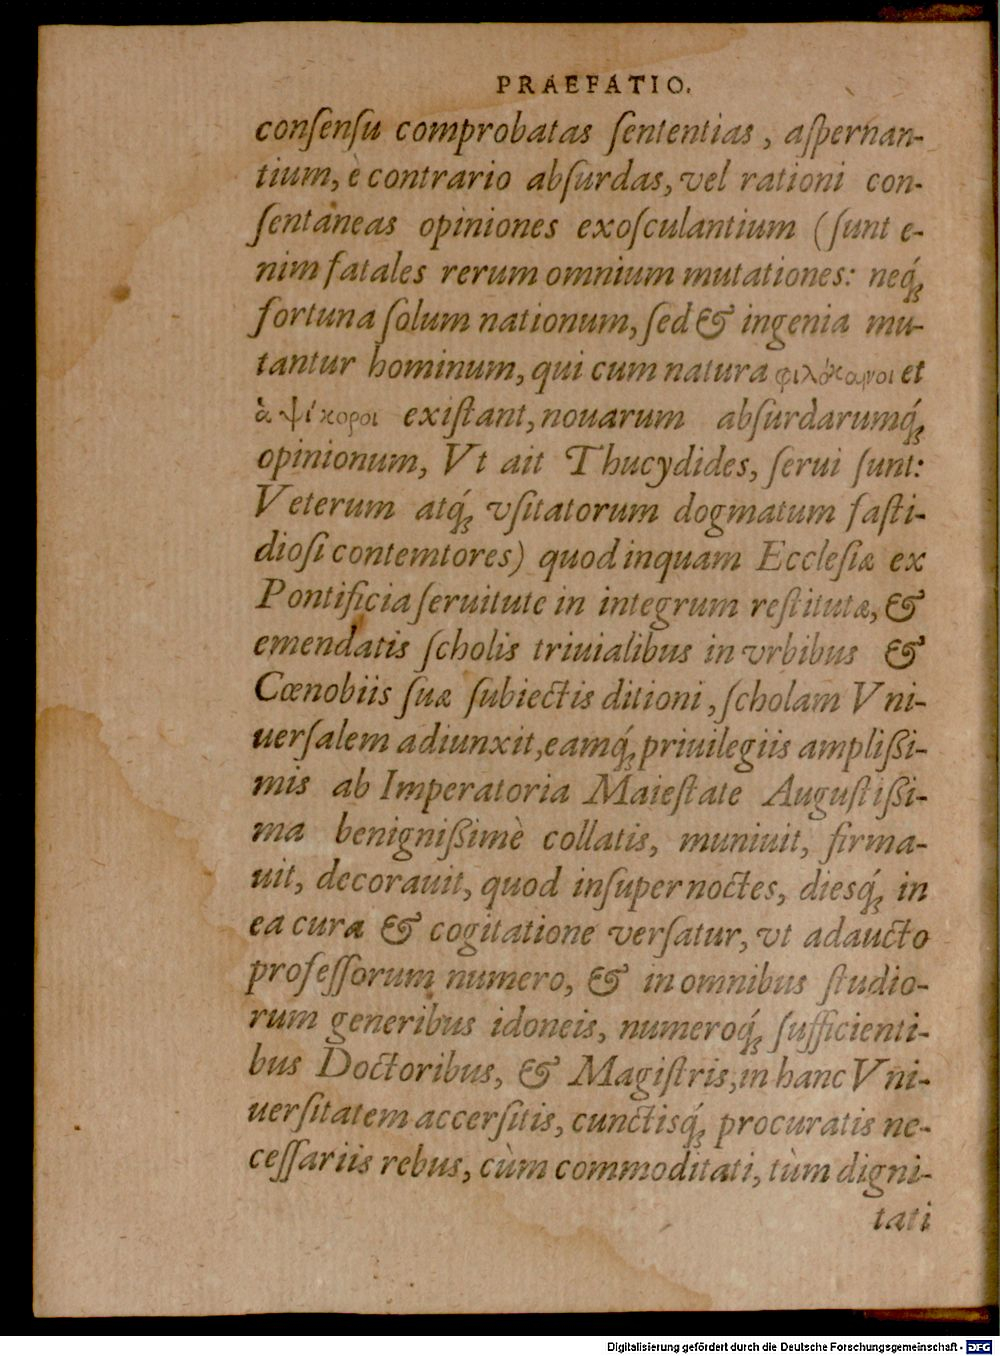 PRAEFATIO.
conſenſu comprobatas ſententias, aſpernan-
tium, è contrario abſurdas, vel rationi con-
ſentaneas opiniones exoſculantium (ſunt e-
nim fatales rerum omnium mutationes: neq́;
fortuna ſolum nationum, ſed & ingenia mu-
tantur hominum, qui cum natura φιλόκαινοι et
ἀψίκοροι exiſtant, nouarum abſurdarumq́;
opinionum, Vt ait Thucydides, ſerui ſunt:
Veterum atq́; vſitatorum dogmatum faſti-
dioſi contemtores) quod inquam Eccleſiæ ex
Pontificia ſeruitute in integrum reſtitutæ, &
emendatis ſcholis triuialibus in vrbibus &
Cœnobiis ſuæ ſubiectis ditioni, ſcholam Vni-
uerſalem adiunxit, eamq́; priuilegiis ampliſsi-
mis ab Imperatoria Maieſtate Auguſtiſsi-
ma benigniſsimè collatis, muniuit, firma-
uit, decorauit, quod inſuper noctes, diesq́; in
ea cura & cogitatione verſatur, vt adaucto
profeſſorum numero, & in omnibus ſtudio-
rum generibus idoneis, numeroq́; ſufficienti-
bus Doctoribus, & Magiſtris, in hanc Vni-
uerſitatem accerſitis, cunctisq́; procuratis ne-
ceſſariis rebus, cùm commoditati, tùm digni-
tati
Digitalisierung gefördert durch die Deutsche Forschungsgemeinschaft - DFG